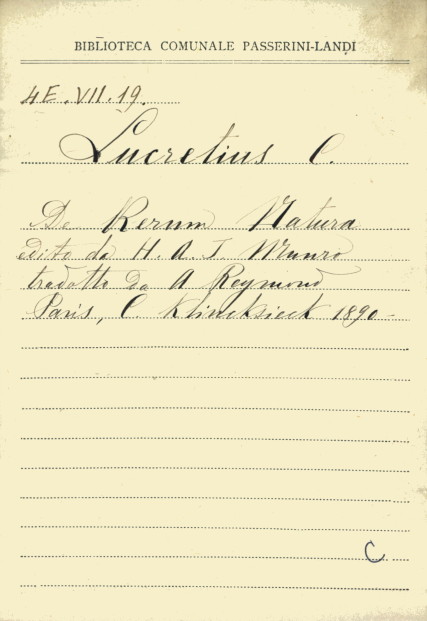 BIBLIOTECA COMUNALE PASSERINI-LANDI
4E. VII. 19.
Lucretius C.
De Rerum Natura
edito da H. A. J. Munro
tradotto da A Reymond
Paris, C. Klincksieck 1890 -
C